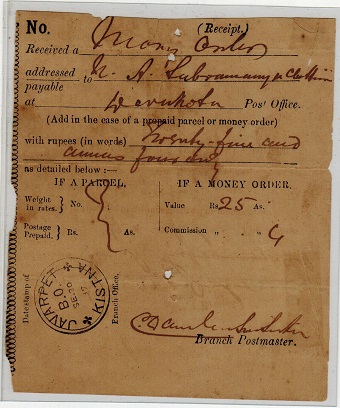 No. (Receipt.)
Received a Money Order
addressed to N. A. Subramanya Chettiar
payable
at Devakota Post Office.
(Add in the case of a prepaid parcel or money order)
with rupees (in words) Twenty-five and
annas four only
as detailed below :—
IF A PARCEL. IF A MONEY ORDER.
Weight in rates. } No. Value Rs. 25 As.
Postage Prepaid. } Rs. As. Commission „ „ 4
Date stamp of Branch Office.
JAVARPET
B.O.
SE 20
KISTNA
Branch Postmaster.